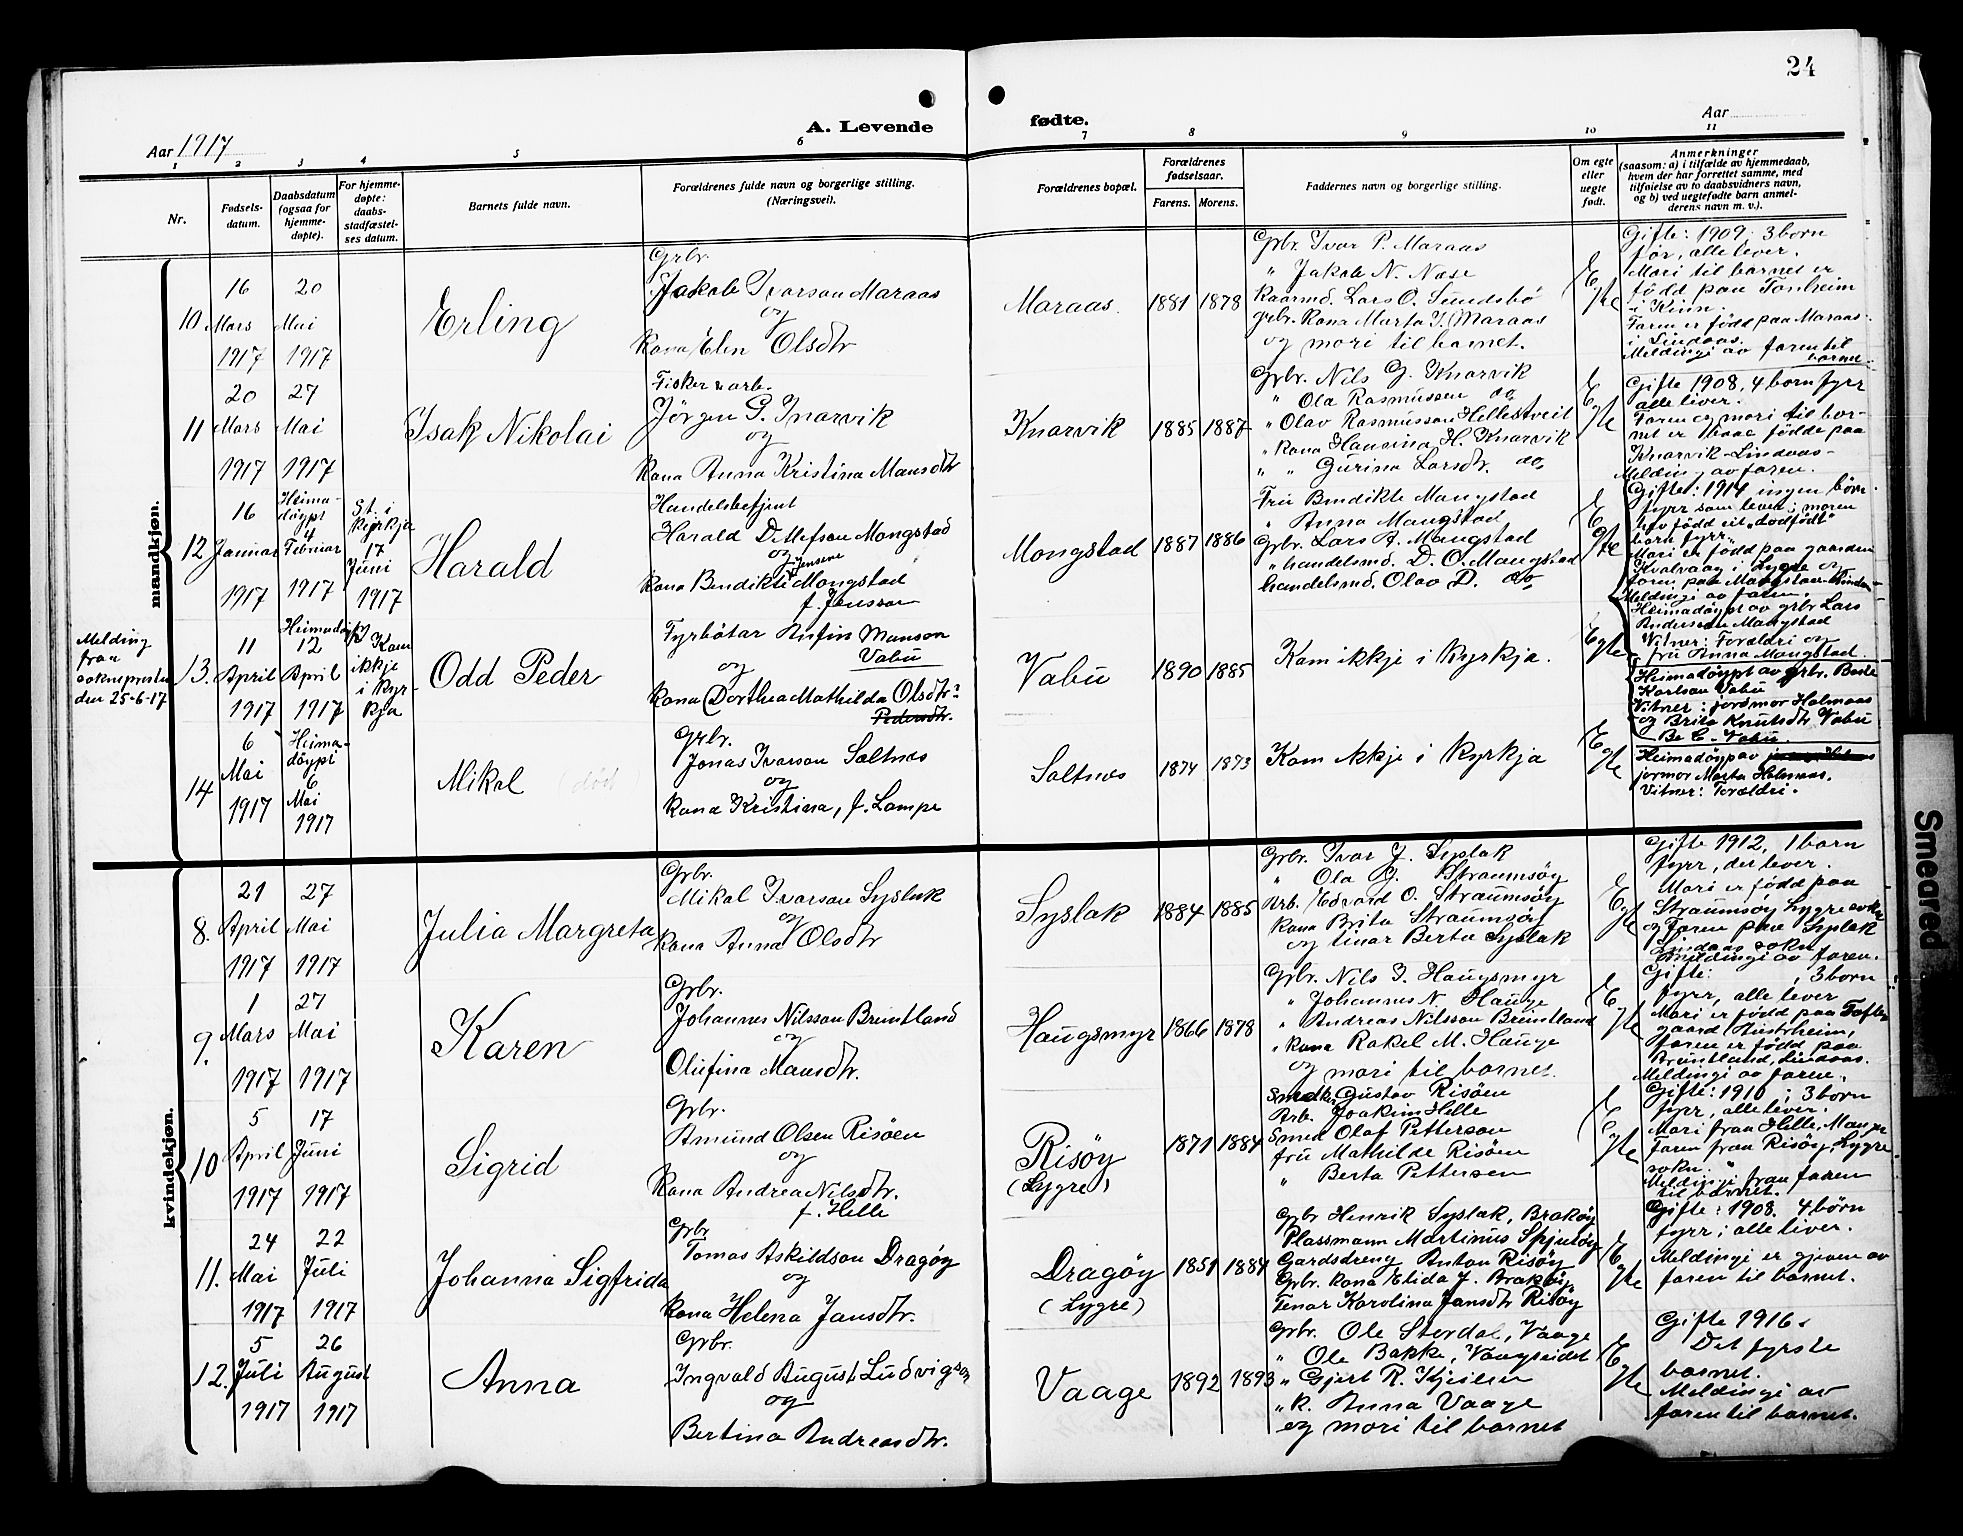 24
Aar 1917
A. Levende
fødte.
Aar
1 2 3 4 5 6 7 8 9 10 11
Nr.
Fødsels-
datum.
Daabsdatum
(ogsaa for
hjemme-
døpte).
For hjemme-
døpte:
daabs-
stadfæstel-
ses datum.
Barnets fulde navn.
Forældrenes fulde navn og borgerlige stilling.
(Næringsvei).
Forældrenes bopæl.
Forældrenes
fødselsaar.
Farens. Morens.
Faddernes navn og borgerlig stilling.
Om egte
eller
uegte
født.
Anmerkninger
(saasom: a) i tilfælde av hjemmedaab,
hvem der har forrettet samme, med
tilføielse av to daabsvidners navn,
og b) ved uegtefødte barn anmel-
derens navn m. v.).
mandkjøn.
10
16
Mars
1917
20
Mai
1917
Erling
Grbr.
Jakob Ivarson Maraas
og
kona Elen Olsdtr
Maraas.
1881 1878
Grbr. Ivar P. Maraas
" Jakob N. Næse
Kaarmd. Lars O. Sundsbø
grbr. kona Marta I. Maraas
og mori til barnet.
Egte
Gifte: 1909: 3 born
før, alle lever.
Mori til barnet er
född paa Tonheim
i Kinn.
Faren er född paa Maraas
i Lindaas.
Meldingi av faren til
barnet.
11
20
Mars
1917
27
Mai
1917
Isak Nikolai
Fisker & arb.
Jörgen G. Knarvik
og
kona Anna Kristina Mansdtr
Knarvik
1885 1887
Grbr. Nils G. Knarvik
" Ola Rasmussen do
" Olav Rasmusson Hellestveit
" kona Hansina H. Knarvik
" " Gurina Larsdtr. do
Egte
Gifte 1908, 4 born fyrr
alle liver.
Faren og mori til bor-
net er baae födde paa
Knarvik-Lindaas-
Melding av faren.
12
16
Januar
1917
Heima-
döypt
4
Februar
1917
St. i
kyrkja
17
Juni
1917
Harald
Handelsbetjent
Harald D. Mongstad
og
Jensine
kona Bendikte Mongstad
f. Jensson
Mongstad
1887 1886
Fru Bendikte Mangstad
" Anna Mangstad
Grbr. Lars A. Mangstad
" handelsmd. D. O. Mangstad
handelsmd. Olav D. do
Egte
Gifte: 1914 ingen børn
fyrr som lever; moren
hev född eit "dodfödt"
barn fyrr"
Mori er född paa gaarden
Kvalvaag i Lygre og
faren paa Mangstad-Lindaas
Meldingi av faren.
Heimadöypt av grbr Lars
Anderssen Mangstad
Vitner: Foreldri og
fru Anna Mangstad.
Melding
fraa
soknepresten
den 25-6-17
13.
11
April
1917
Heimadöypt
12
April
1917
Kom
ikkje
i kyr-
kja
Odd Peder
Fyrbötar Anfin Manson
Vabu
og
kona Dorthea Mathilda Olsdtr?
Pedersdtr.
Vabu
1890 1885
Kom ikkje i kyrkja.
Egte
Heimadöypt av grbr. Berle
Karlson Vabu
Vitner: jordmor Holmaas
og Brita Knutsdtr Vabu
Be C. Vabu.
14
6
Mai
1917
Heima-
döypt
6
Mai
1917
Mikal (död)
Grbr.
Jonas Ivarson Saltnes
og
kona Kristina, f. Lampe
Saltnes
1874 1873
Kom ikkje i kyrkja
Egte
Heimadöyp av
jormor Marta Holmaas.
Vitner: Foreldri.
kvindekjøn.
8.
21
April
1917
27
Mai
1917
Julia Margreta
Grbr.
Mikal Ivarson Syslak
og
kona Anna Olsdtr
Syslak
1884 1885
Grbr. Ivar J. Syslak
" Ola J. Straumsöy
Arb. Edvard O. Straumsöy
kona Brita Straumsöy
og tinar Berta Syslak
Egte
Gifte 1912, 1 born
fyrr, det lever.
Mori er född paa
Straumsöy Lygre sokn
og Faren paa Syslak
Lindaas sokn
Meldingi av faren.
9.
1
Mars
1917
27
Mai
1917
Karen
Grbr.
Johannes Nilsson Bruntland
og
Olufina Mansdtr.
Haugsmyr
1866 1878
Grbr. Nils J. Haugsmyr
" Johannes N. Hauge
" Andreas Nilsson Bruntland
" kona Rakel M. Hauge
og mori til barnet.
Egte
Gifte: , 3 born
fyrr, alle lever
Mori er född paa Tofte
gaard Austrheim,
faren er född paa
Bruntland, Lindaas.
Meldingi av faren.
10
5
April
1917
17
Juni
1917
Sigrid
Grbr.
Amund Olsen Risöen
og
kona Andrea Nilsdtr.
f. Hille
Risöy
(Lygre)
1871 1884
Snedker Gustav Risöen
Arb. Joakim Hille
Smed Olaf Petterson
fru Mathilde Risöen
" Berta Pettersen
Egte
Gifte: 1910; 3 born
fyrr, alle lever.
Mori fraa Hille, Mangr
Faren fraa Risöy, Lygre
sokn.
Meldingi fraa faren
til barnet.
11.
24
Mai
1917
22
Juli
1917
Johanna Sigfrida
Grbr
Tomas Askildson Dragöy
og
kona Helena Jansdtr.
Dragöy
(Lygre)
1851 1884
Grbr Henrik Syslak, Braköy
Plassmann Martinus Spjutöy
Gardsdreng Anton Risöy
Grbr. kona Elida J. Braköy
Tenar Karolina Jansdtr Risöy
Egte
Gifte: 1908. 4 børn
fyrr; alle liver.
Meldingi er gjeven av
faren til barnet.
12.
5
Juli
1917
26
August
1917
Anna
Grbr.
Ingvald August Ludvigson
og
Bertina Andreasdtr.
Vaage
1892 1893
Grbr. Ole Stordal, Vaage
" Ole Bakke, Vaagseidet
" Gjert R. Kjeilen
" k. Anna Vaage
og mori til barnet
Egte
Gifte 1916.
Det fyrste
barnet.
Meldingi av
faren til barnet.
Smeared